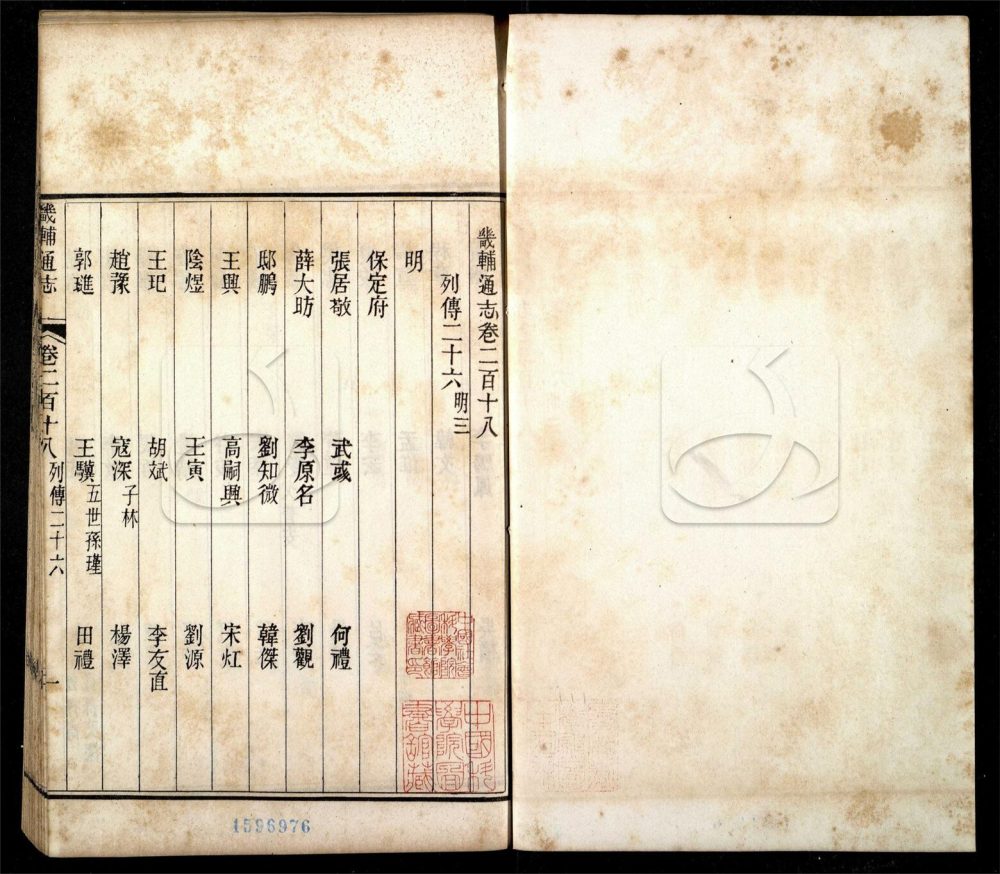 畿輔通志卷二百十八
列傳二十六 明三
明
保定府
張居敬 武彧 何禮
薛大昉 李原名 劉觀
邸鵬 劉知微 韓傑
王興 高嗣興 宋矼
陰煜 王寅 劉源
王玘 胡斌 李友直
趙豫 寇深 子林 楊澤
郭璡 王驥 五世孫瑾 田禮
畿輔通志 卷二百十八 列傳二十六 一
1596976